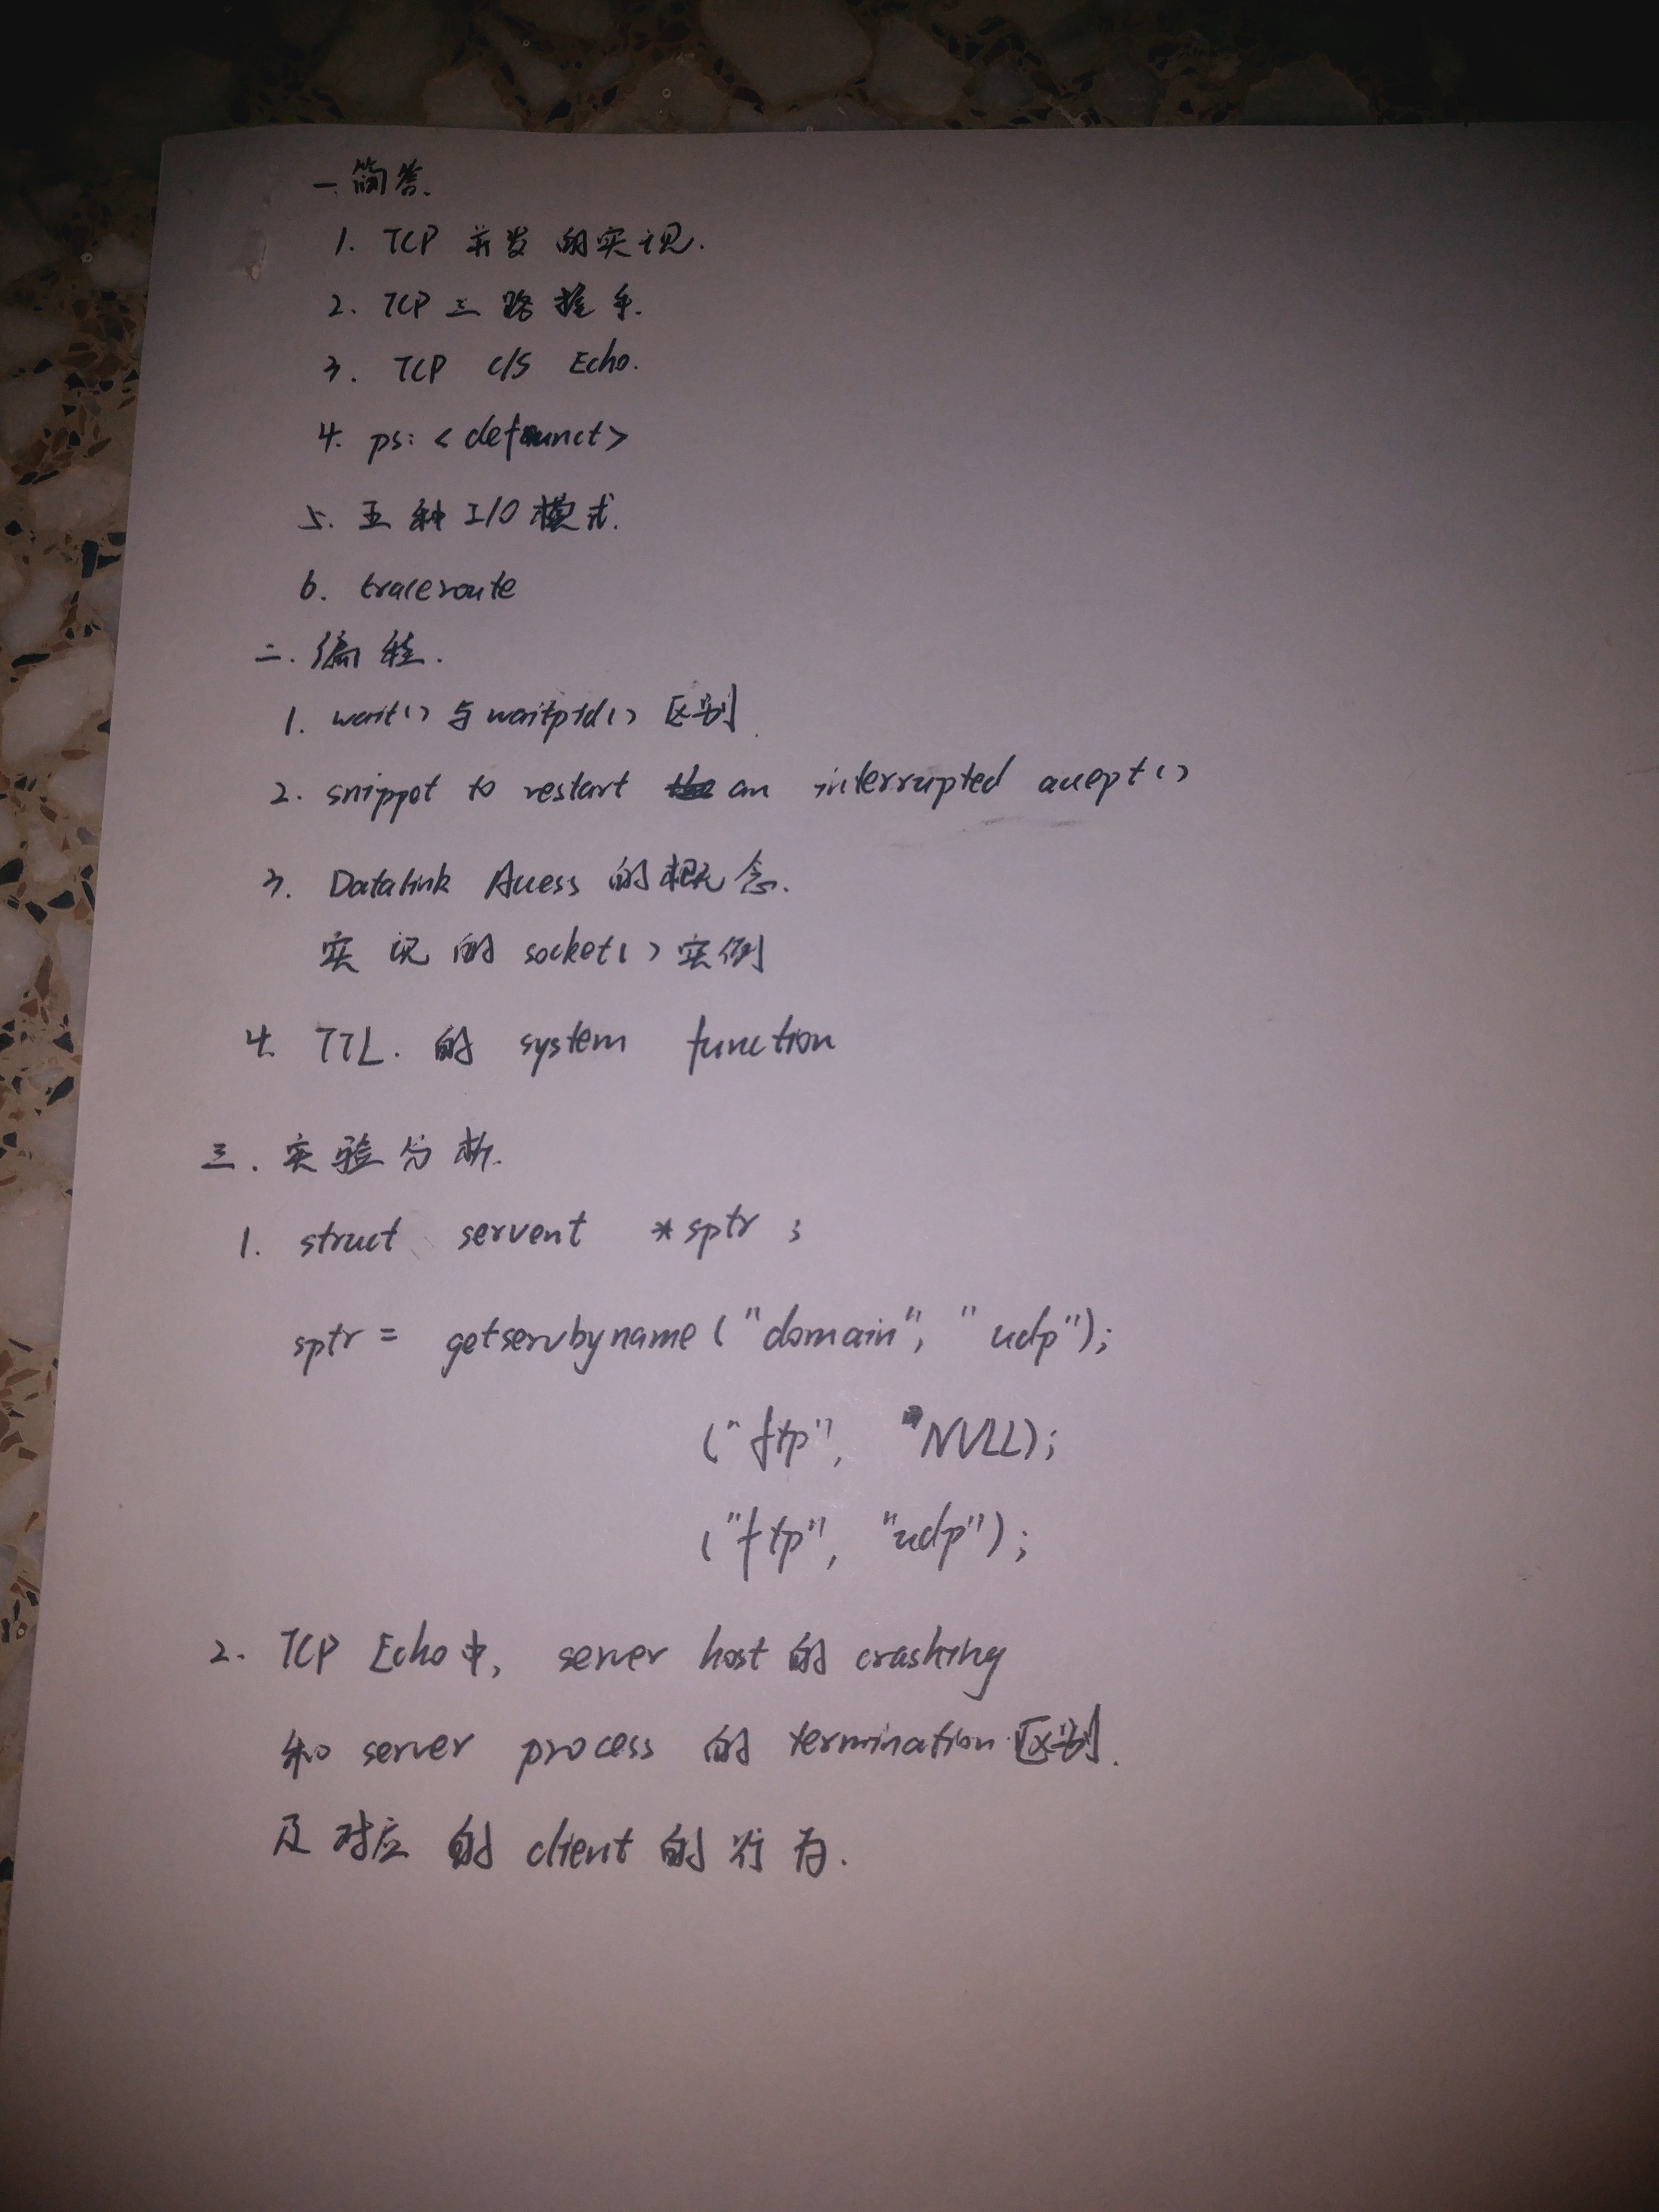 一. 简答.
1. TCP 并发的实现.
2. TCP 三路握手.
3. TCP C/S Echo.
4. ps: <defunct>
5. 五种 I/O 模式.
6. traceroute
二. 编程.
1. wait() 与 waitpid() 区别.
2. snippet to restart an interrupted accept()
3. Datalink Access 的概念.
实现的 socket() 实例
4. TTL. 的 system function
三. 实验分析.
1. struct servent *sptr ;
sptr = getservbyname ("domain", "udp");
("ftp", NULL);
("ftp", "udp");
2. TCP Echo中, server host 的 crashing
和 server process 的 termination 区别.
及对应的 client 的行为.